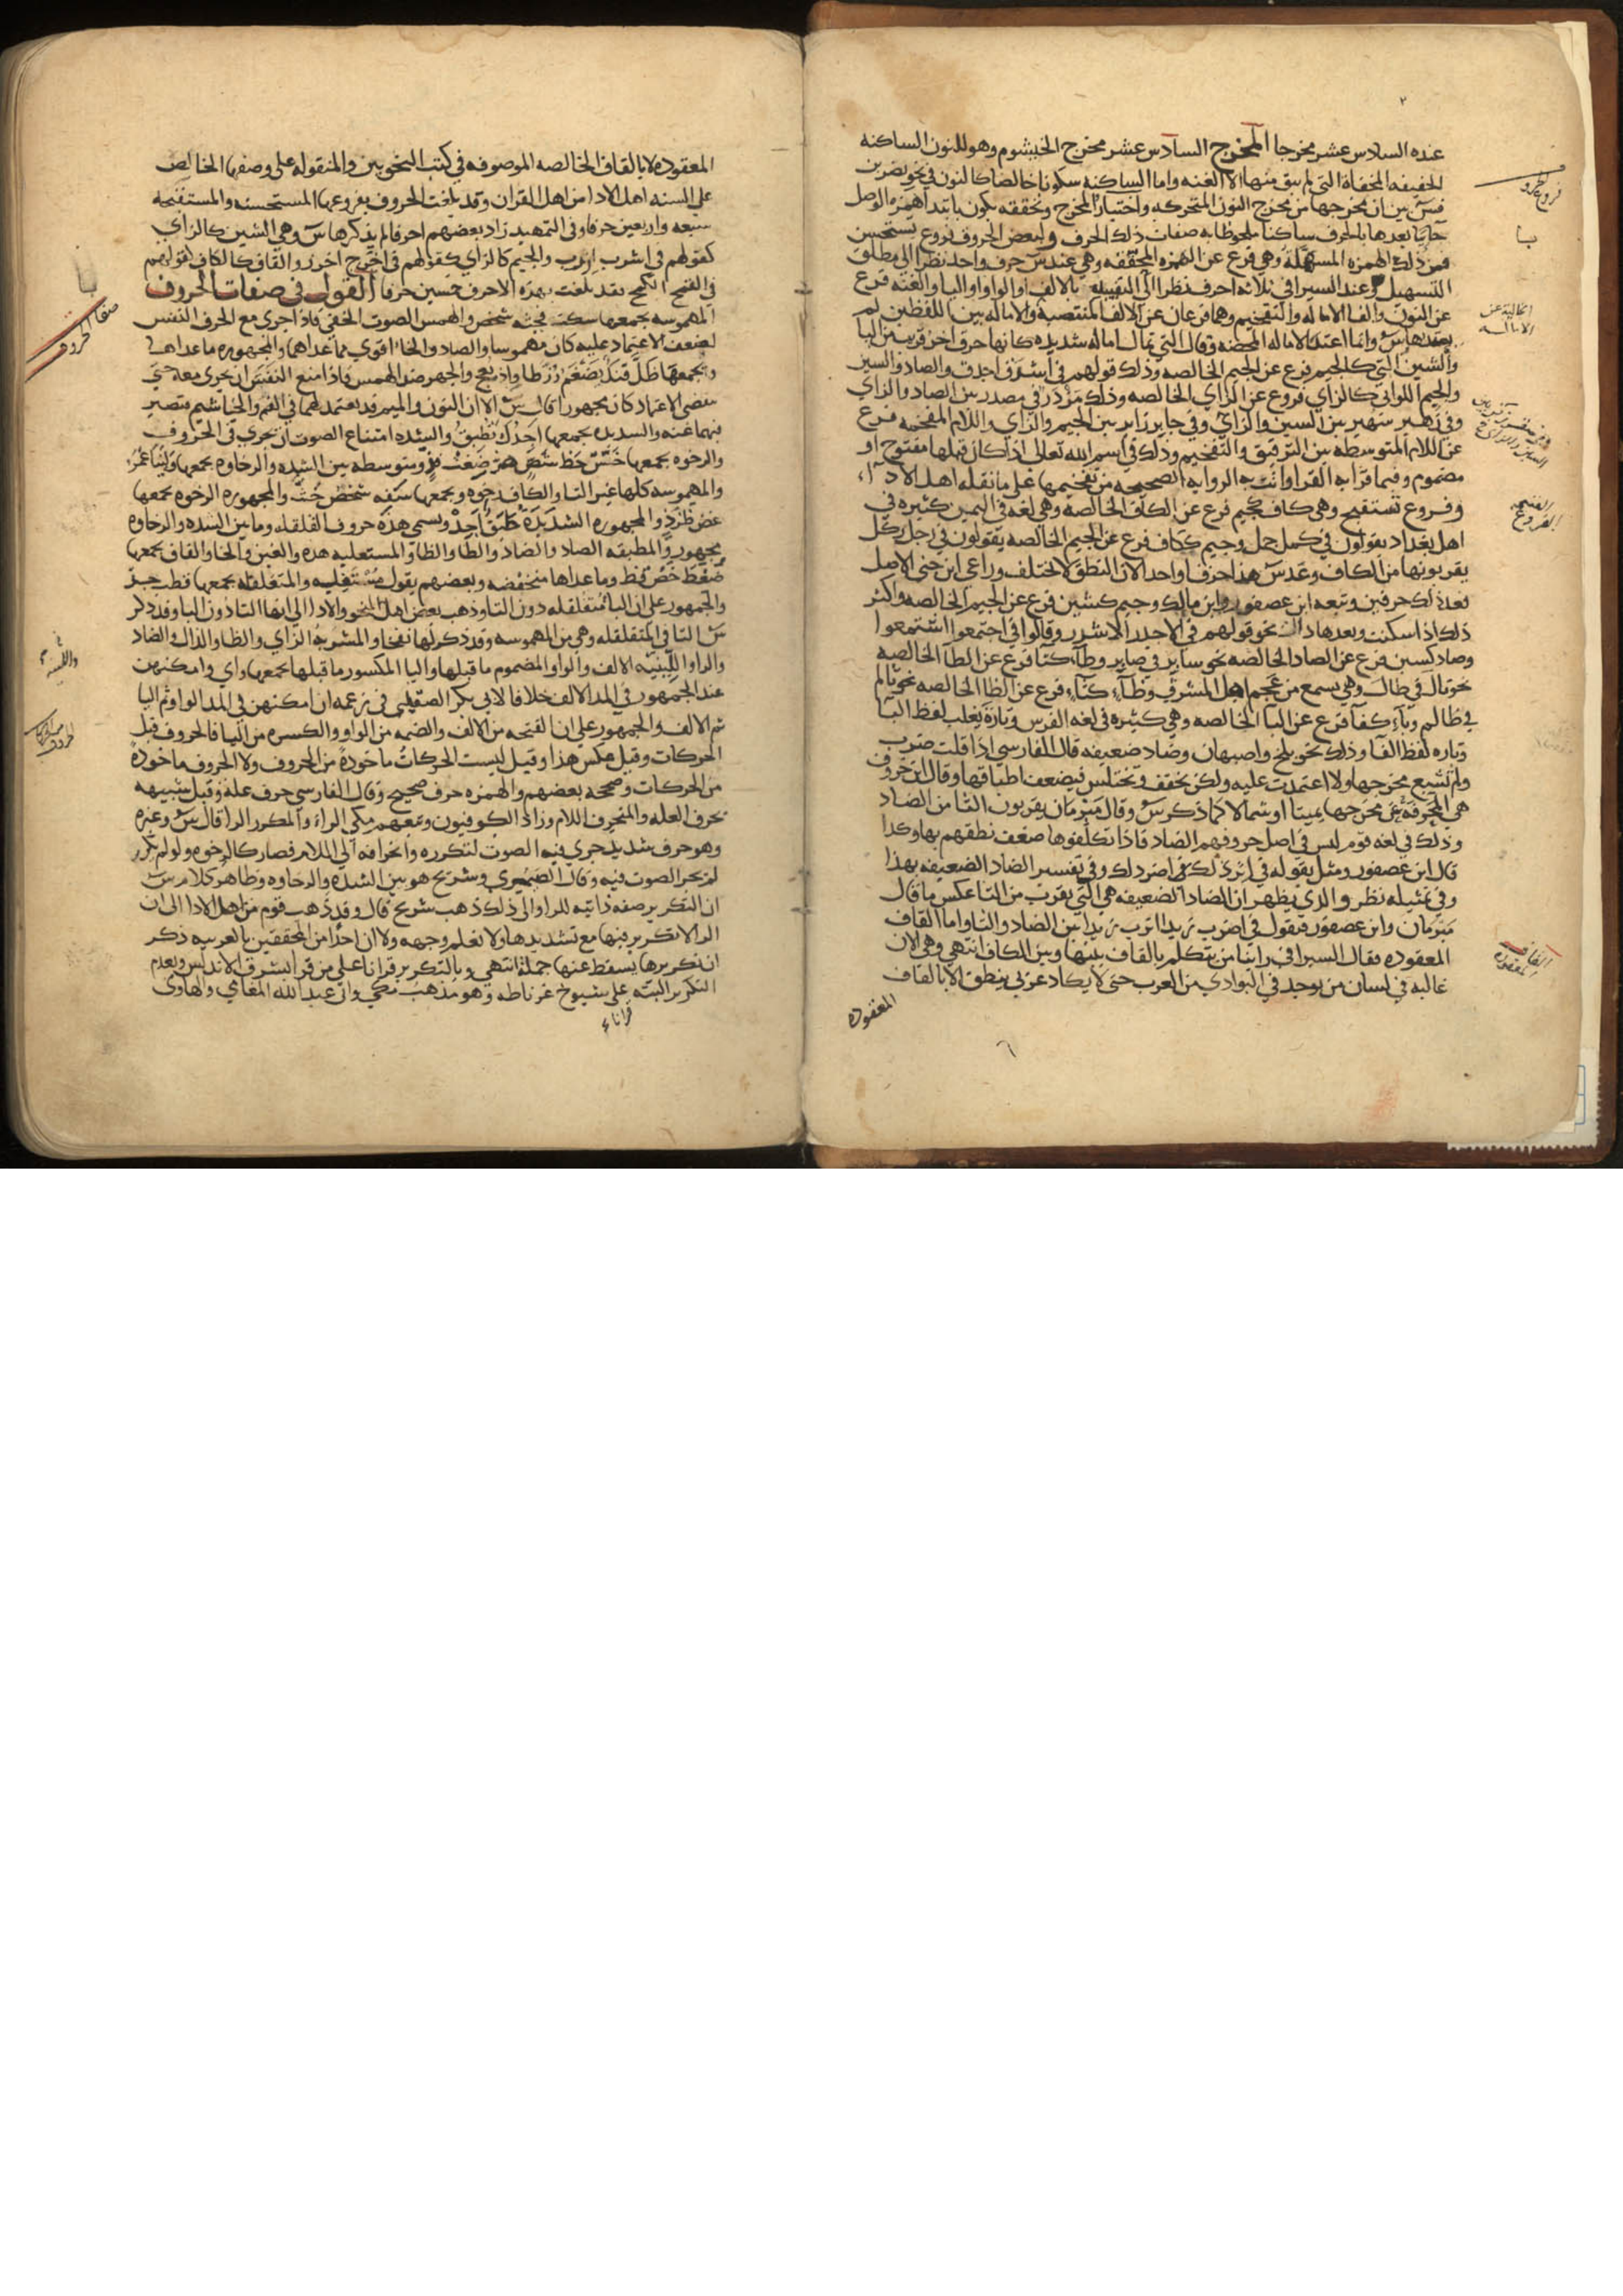 عنده السادس عشر مخرجا المخرج السادس عشر مخرج الخيشوم وهو للنون الساكنه
الخفيفه المخفاة التي لم يبق منها الا الغنه واما الساكنه سكونا خالصا كالنون في نحو يضربن
فس بين ان مخرجها من مخرج النون المتحركه واختبار المخرج وتحققه يكون بابتدا همزه الوصل
جايا بعدها بالحرف ساكنا ملحوظا به صفات ذلك الحرف ولبعض الحروف فروع تستحسن
فمن ذلك الهمزه المسهلة وهي فرع عن الهمزه المحققه وهي عند س حرف واحد نظرا الى مطلق
التسهيل وعند السيرافي ثلاثه احرف نظرا الى التقييد بالالف او الواو او اليا والغنه فرع
عن النون والف الاماله والتفخيم وهما فرعان عن الالف المنتصبة والاماله بين اللفظين لم
يعتدها س وانما اعتد الاماله المحضه وقال التي تمال اماله شديده كانها حرف اخر قرب من اليا
والشين التي كالجيم فرع عن الجيم الخالصه وذلك قولهم في اشدق اجدق والصاد والسين
والجيم اللواتي كالزاي فروع عن الزاي الخالصه وذلك مزدر في مصدر بين الصاد والزاي
وفي زهير سهير بين السين والزاي وفي جابر زابر بين الجيم والزاي واللام المفخمه فرع
عن اللام المتوسطه بين الترقيق والتفخيم وذلك في اسم الله تعالى اذا كان قبلها مفتوح او
مضموم وفيما قرا به القرا واتت به الروايه الصحيحه من تفخيمها على ما نقله اهل الادآء
وفروع تستقبح وهي كاف كجيم فرع عن الكاف الخالصه وهي لغه في اليمن كثيره في
اهل بغداد يقولون في كمل جمل وجيم ككاف فرع عن الجيم الخالصه يقولون في رجل ركل
يقربونها من الكاف وعد س هذا حرفا واحدا لان النطق لا يختلف وراعى ابن جني الاصل
فعد ذلك حرفين وتبعه ابن عصفور وابن مالك وجيم كشين فرع عن الجيم الخالصه واكثر
ذلك اذا سكنت وبعدها دال نحو قولهم في الاجدر الاشدر وقالوا في اجتمعوا اشتمعوا
وصاد كسين فرع عن الصاد الخالصه نحو سابر في صابر وطآء كتا فرع عن الطآ الخالصه
نحو تال في طال وهي تسمع من عجم اهل المشرق وظآء كثآء فرع عن الظا الخالصه نحو ثالم
في ظالم وبآء كفآ فرع عن البآ الخالصه وهي كثيره في لغه الفرس وتارة يغلب لفظ البآ
وتاره لفظ الفآ وذلك نحو بلخ واصبهان وضاد ضعيفه قال الفارسي اذا قلت ضرب
ولم تشبع مخرجها ولا اعتمدت عليه ولكن تخفف وتختلس فيضعف اطباقها وقال ابن خروف
هي المحرفة عن مخرجها يمينا او شمالا كما ذكر س وقال مبرمان يقربون الثا من الضاد
وذلك في لغه قوم ليس في اصل حروفهم الضاد فاذا تكلفوها ضعف نطقهم بها وكذا
قال ابن عصفور ومثل بقوله في اثرد لك اضرد لك وفي تفسير الضاد الضعيفه بهذا
وفي تمثيله نظر والذي يظهر ان الضاد الضعيفه هي التي يقرب من الثا عكس ما قال
مبرمان وابن عصفور فيقول في اضرب زيدا اثرب زيدا بين الضاد والثا واما القاف
المعقوده فقال السيرافي راينا من يتكلم بالقاف بينها وبين الكاف انتهى وهي الان
غالبه في لسان من يوجد في البوادي من العرب حتى لا يكاد عربي ينطق الا بالقاف
المعقوده
فروع الحروف
القاف
المعقوده
المعقوده لا بالقاف الخالصه الموصوفه في كتب النحويين والمنقوله على وصفها الخالص
على السنه اهل الادا من اهل القران وقد بلغت الحروف بفروعها المستحسنه والمستقبحه
سبعه واربعين حرفا وفي التمهيد زاد بعضهم احرفا لم يذكرها س وهي الشين كالزاي
كقولهم في اشرب ازرب والجيم كالزاي كقولهم في اخرج اخرز والقاف كالكاف كقولهم
في القمح الكمح فقد بلغت بهذه الاحرف خمسين حرفا القول في صفات الحروف
المهموسه يجمعها سكت فحثه شخص والهمس الصوت الخفي فاذا جرى مع الحرف النفس
لضعف الاعتماد عليه كان مهموسا والصاد والخا اقوى مما عداهما والمجهوره ما عداها
والجهر ضد الهمس فاذا منع النفس ان يجري معه حتى
ينقضي الاعتماد كان مجهورا قال س الا ان النون والميم قد يعتمد لهما في الفم والخياشيم فتصير
فيهما غنه والشديده يجمعها اجدك تطبق والشده امتناع الصوت ان يجري في الحروف
والرخوه يجمعها ومتوسطه بين الشده والرخاوه يجمعها
والمهموسه كلها غير التا والكاف رخوه ويجمعها والمجهوره الرخوه يجمعها
والمجهوره الشديده ويسمى هذه حروف القلقله وما بين الشده والرخاوه
مجهور والمطبقه الصاد والضاد والطا والظا والمستعليه هذه والغين والخا والقاف يجمعها
ضغط خص قظ وما عداها منخفضه وبعضهم يقول مستفله والمتقلقله يجمعها قطب جد
والجمهور على ان البا متقلقله دون التا وذهب بعض اهل النحو والادا الى انها التا دون البا وقد ذكر
س التا في المتقلقله وهي من المهموسه وقد ذكر لها نفخا والمشربه الزاي والظا والذال والضاد
والراء واللينيه الالف والواو المضموم ما قبلها واليا المكسور ما قبلها يجمعها واي وامكنهن
عند الجمهور في المد الالف خلافا لابي بكر الصقلي في زعمه ان امكنهن في المد الواو ثم اليا
ثم الالف والجمهور على ان الفتحه من الالف والضمه من الواو والكسره من اليا فالحروف قبل
الحركات وقيل عكس هذا وقيل ليست الحركات ماخوذة من الحروف ولا الحروف ماخوذة
من الحركات وصححه بعضهم والهمزه حرف صحيح وقال الفارسي حرف علة وقيل شبيهه
بحرف العله والمنحرف اللام وزاد الكوفيون ومعهم مكي الراء والمكرر الرا قال س وغيره
وهو حرف شديد جرى فيه الصوت لتكرره وانحرافه الى اللام فصار كالرخوه ولو لم يكرر
لم يجر الصوت فيه وقال الصيمري وشريح هو بين الشده والرخاوه وظاهر كلام س
ان التكرير صفه ذاتيه للرا والى ذلك ذهب شريح قال وقد ذهب قوم من اهل الادا الى ان
الرا لا تكرير فيها مع تشديدها ولا نعلم وجهه ولا ان احدا من المحققين بالعربيه ذكر
ان تكريرها يسقط عنها جملة انتهى وبالتكرير قرانا على من قرا بشرق الاندلس وبعدم
التكرير البته على شيوخ غرناطه وهو مذهب مكي وابي عبد الله المغامي والهاوي
صفات الحروف